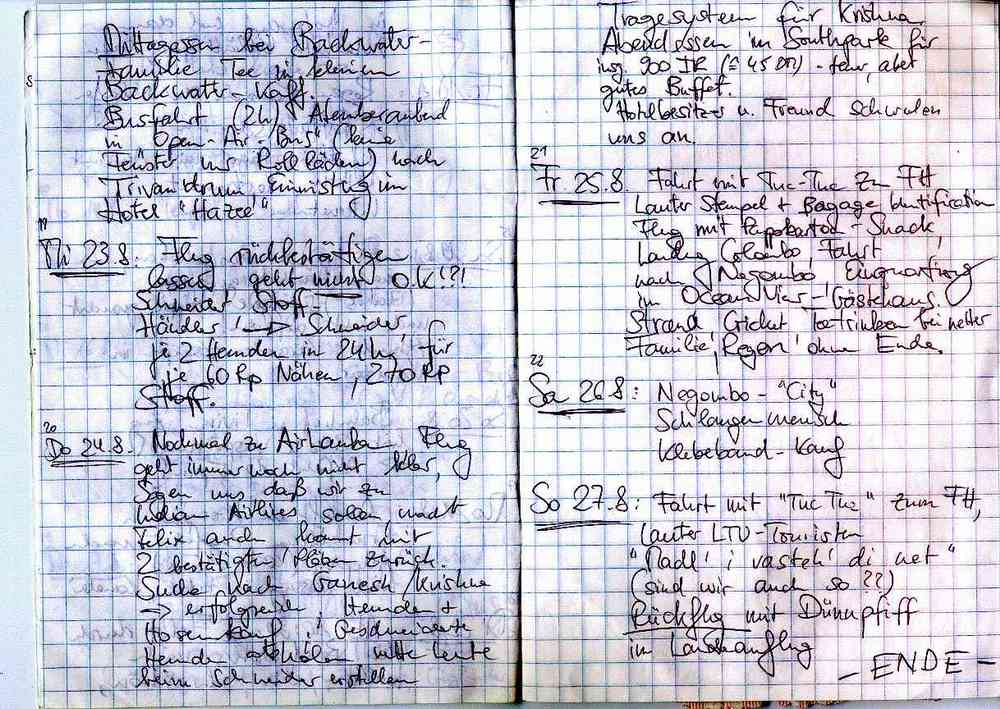 Mittagessen bei Backwater-
familie Tee in kleinem
Backwater-Kaff.
Busfahrt (2h) Atemberaubend
in "Open-Air-Bus" (keine
Fenster nur Rollläden) nach
Trivandrum Einnistung im
Hotel "Hazee"
19
Mi 23.8. Flug rückbestätigen
lassen geht nicht O.K!?!
Schneider Stoff
Händler → Schneider,
je 2 Hemden in 24h, für
je 60 Rp Nähen, 270 Rp
Stoff.
20
Do 24.8. Nochmal zu AirLanka Flug
geht immer noch nicht klar,
Sagen uns daß wir zu
Indian Airlines sollen, macht
Felix auch kommt mit
2 bestätigten Plätzen zurück.
Suche nach Ganesh/Krishna
→ erfolgreich, Hemden +
Hosenkauf, Geschneiderte
Hemden abholen, nette Leute
beim Schneider
Tragesystem für Krishna
Abendessen im Southpark für
insg. 900 IR (≙ 45 DM) - teuer, aber
gutes Buffet.
Hotelbesitzer u. Freund schwulen
uns an.
21
Fr. 25.8. Fahrt mit Tuc-Tuc zu FH
Lauter Stempel + Bagage Identification
Flug mit Pappkarton-Snack,
Landung Colombo, Fahrt
nach Negombo Einquartirung
im Ocean View-Gästehaus.
Strand, Cricket Teetrinken bei netter
Familie, Regen ohne Ende.
22
Sa 26.8: Negombo - "City"
Schlangenmensch
Klebeband-Kauf
So 27.8: Fahrt mit "Tuc Tuc" zum FH,
Lauter LTU-Touristen
"Madl' i vasteh' di net"
(sind wir auch so ??)
Rückflug mit Dünnpfiff
im Landeanflug
- ENDE -